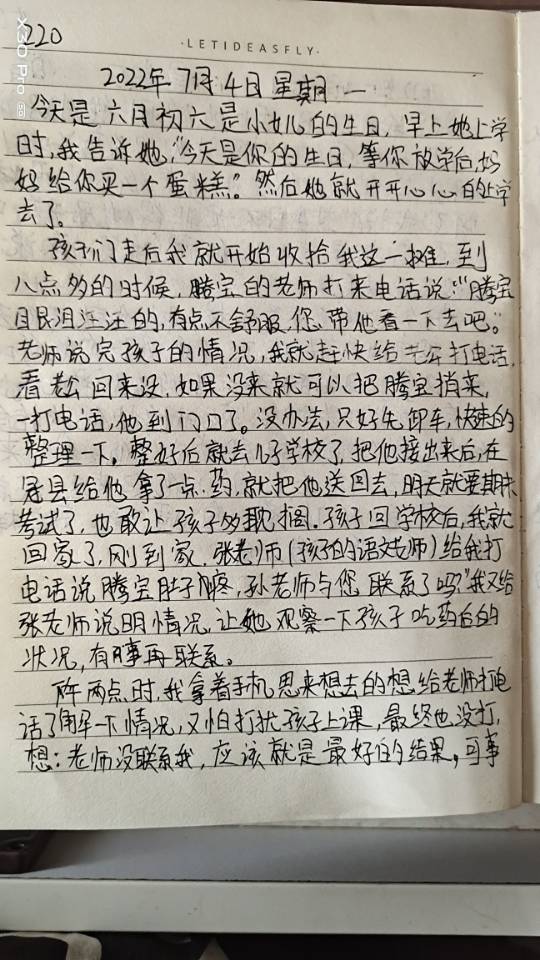 220
·LETIDEASFLY·
X30 Pro 5G
2022年7月4日 星期一
今天是六月初六是小女儿的生日，早上她上学
时，我告诉她，“今天是你的生日，等你放学后，妈
妈给你买一个蛋糕”。然后她就开开心心的上学
去了。
孩子们走后我就开始收拾我这一摊，到
八点多的时候，腾宝的老师打来电话说：“腾宝
目艮泪汪汪的，有点不舒服，您带他看一下去吧。”
老师说完孩子的情况，我就赶快给老公打电话，
看老公回来没，如果没来就可以把腾宝捎来，
一打电话，他到门口了。没办法，只好先卸车，快速的
整理一下。整好后就去儿子学校了，把他接出来后，在
冠县给他拿了一点药，就把他送回去，明天就要期末
考试了，也敢让孩子多耽搁。孩子回学校后，我就
回家了，刚到家，张老师（孩子的语文老师）给我打
电话说腾宝肚子疼，孙老师与您联系了吗？”我又给
张老师说明情况，让她观察一下孩子吃药后的
状况，有事再联系。
下午两点时，我拿着手机思来想去的想给老师打电
话了解一下情况，又怕打扰孩子上课，最终也没打，
想：老师没联系我，应该就是最好的结果。可事